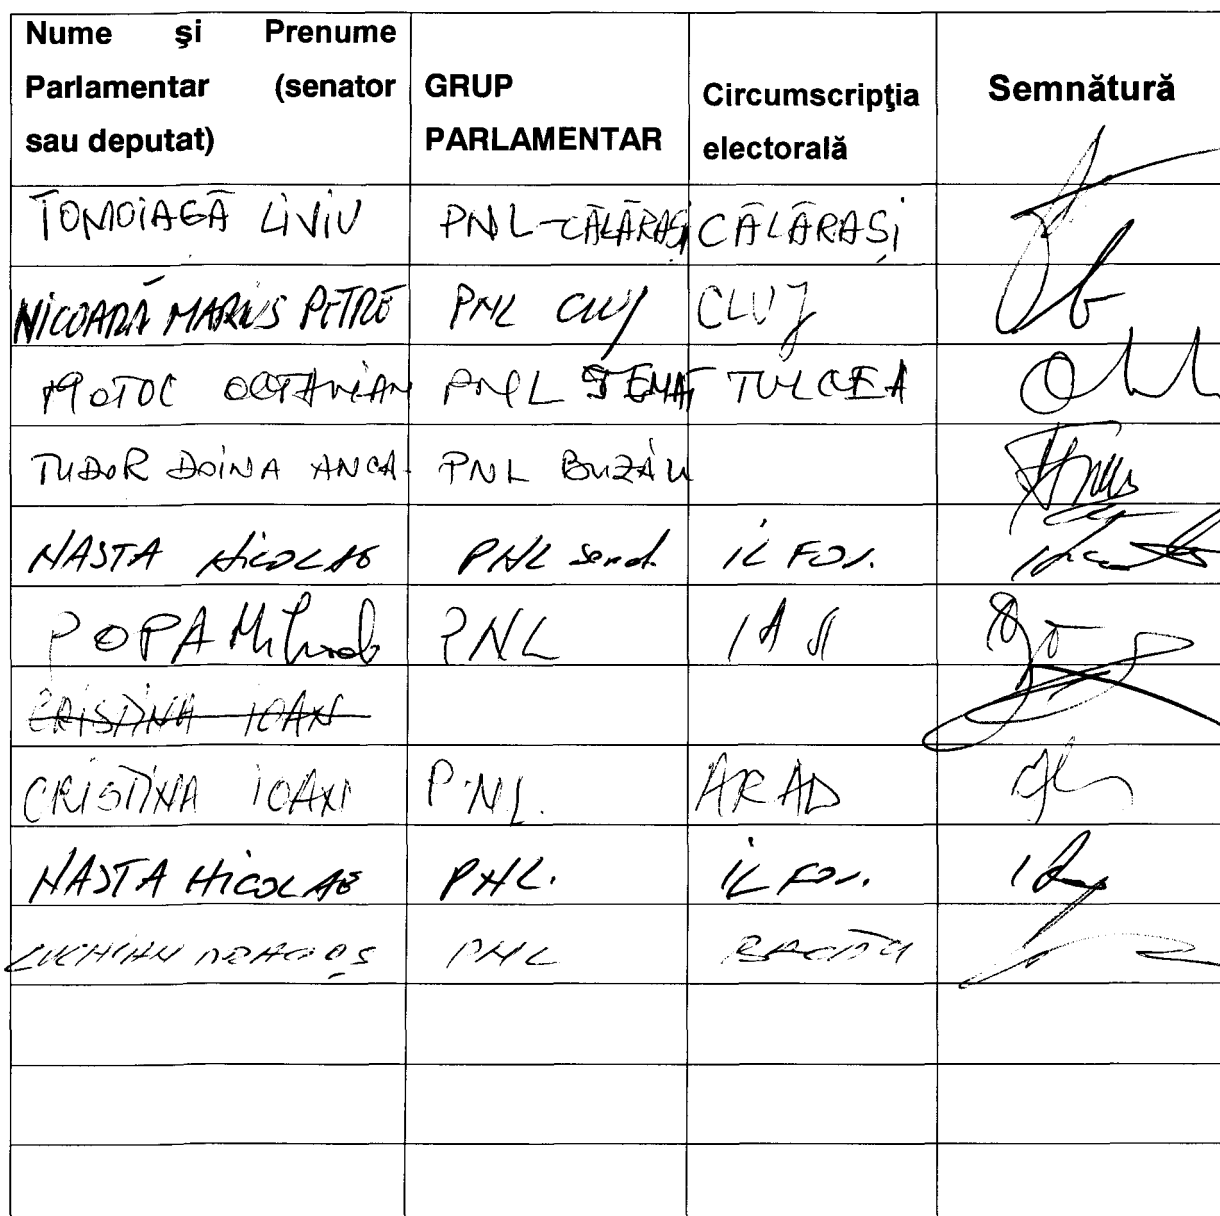 Nume şi Prenume
Parlamentar (senator
sau deputat)
GRUP
PARLAMENTAR
Circumscripţia
electorală
Semnătură
TOMOIAGĂ LIVIU PNL-CĂLĂRAȘI CĂLĂRAȘI
NICOARĂ MARIUS PETRE PNL CLUJ CLUJ
MOTOC OCTAVIAN PNL SENAT TULCEA
TUDOR DOINA ANCA PNL BUZĂU
NASTA NICOLAE PNL senat. ILFOV.
POPA Mihail PNL IASI
CRISTINA IOAN
CRISTINA IOAN PNL. ARAD
NASTA NICOLAE PNL. ILFOV.
LUCHIAN DRAGOȘ PNL BACĂU